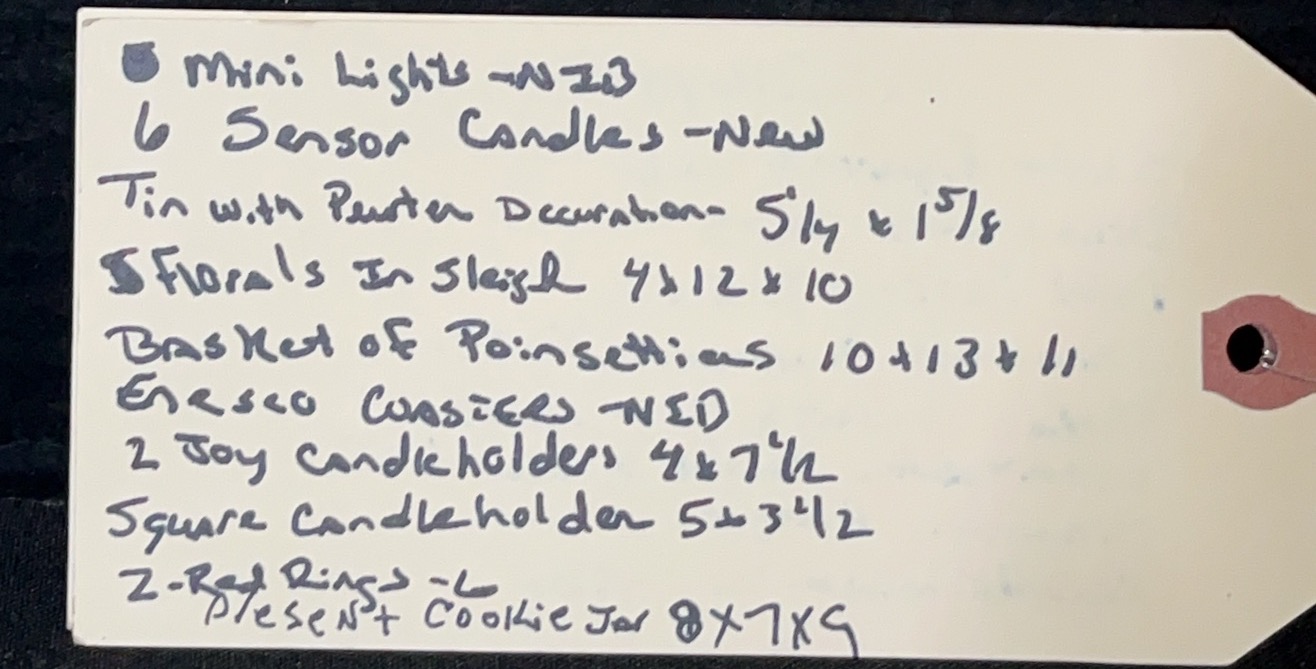 Mini Lights -NIB
6 Sensor Candles -New
Tin with Pewter Decoration- 5 1/4 x 1 5/8
Florals In Sleigh 4x12x10
Basket of Poinsettias 10x13x11
Enesco Coasters -NIB
2 Joy Candleholders 4x7 1/2
Square Candleholder 5x3 1/2
2-Red Rings -6
Present Cookie Jar 8x7x9